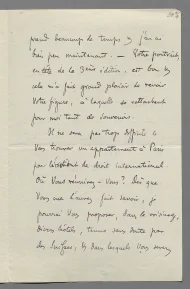 prend beaucoup de temps & j'en ai
bien peu maintenant. — Votre portrait,
en tête de la 3ème édition, est bon &
cela m'a fait grand plaisir de revoir
votre figure, à laquelle se rattachent
pour moi tant de souvenirs.
Il ne sera pas trop difficile de
vous trouver un appartement à Paris
pour l'institut de droit international
Où vous réunirez-vous? Dès que
vous me l'aurez fait savoir, je
pourrai vous proposer, dans le voisinage,
divers hôtels, tenus sans doute par
des Suisses, & dans lesquels vous serez